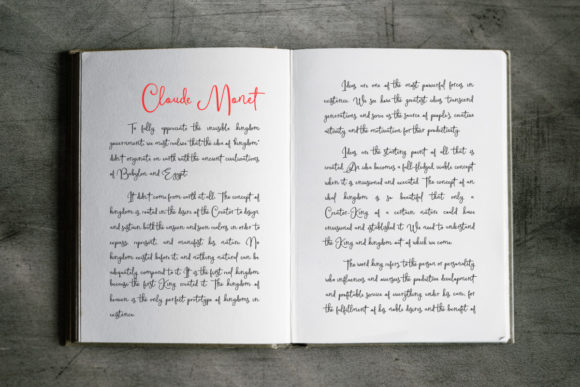 Claude Monet
To fully appreciate the invisible kingdom
government, we must realise that the idea of "kingdom"
didn't originate on earth with the ancient civilizations
of Babylon and Egypt.
It didn't come from earth at all. The concept of
kingdom is rooted in the desire of the Creator to design
and sustain both the unseen and seen realms in order to
express, represent, and manifest his nature. No
kingdom existed before it, and nothing natural can be
adequately compared to it. It is the first real kingdom
because the first King created it. The kingdom of
heaven is the only perfect prototype of kingdoms in
existence.
Ideas are one of the most powerful forces in
existence. We see how the greatest ideas transcend
generations and serve as the source of people's creative
activity and the motivation for their productivity.
Ideas are the starting point of all that is
created. An idea becomes a full-fledged, viable concept
when it is envisioned and executed. The concept of an
ideal kingdom is so beautiful that only a
Creator-King of a certain nature could have
envisioned and established it. We need to understand
the King and kingdom out of which we come.
The word king refers to the person or personality
who influences and oversees the productive development
and profitable service of everything under his care, for
the fulfillment of his noble desires and the benefit of